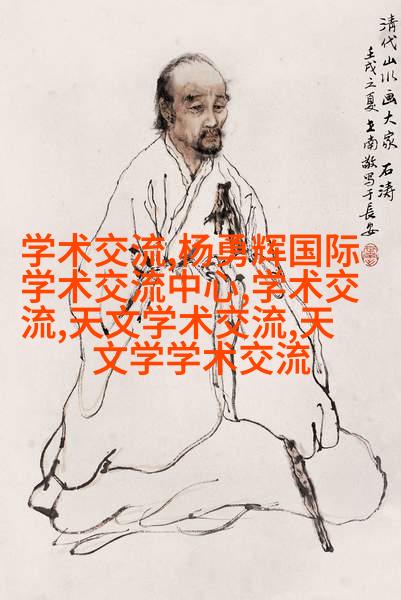 清代山水画大家 石涛
壬戌之夏 王南敬写于長安
学术交流,杨勇辉国际
学术交流中心,学术交
流,天文学术交流,天
文学学术交流